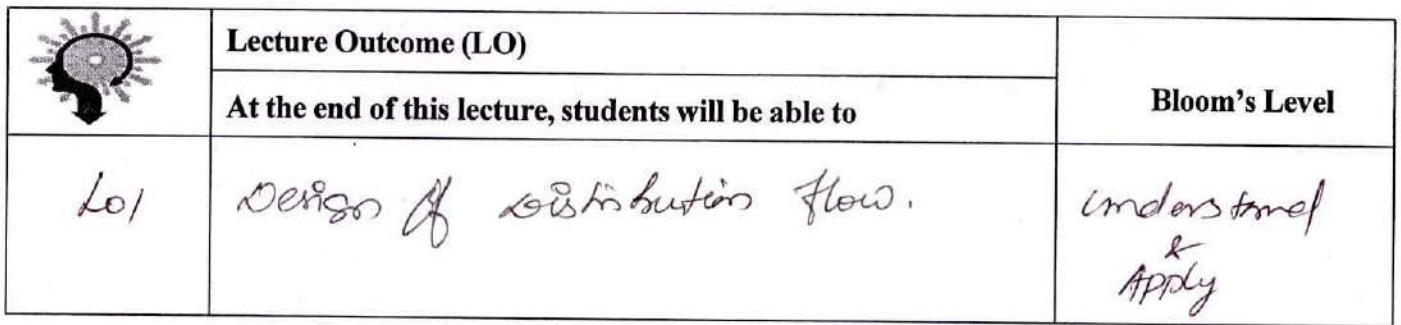 Lecture Outcome (LO)
At the end of this lecture, students will be able to
Bloom's Level
LO1
Design of Distribution flow.
Understand
&
Apply